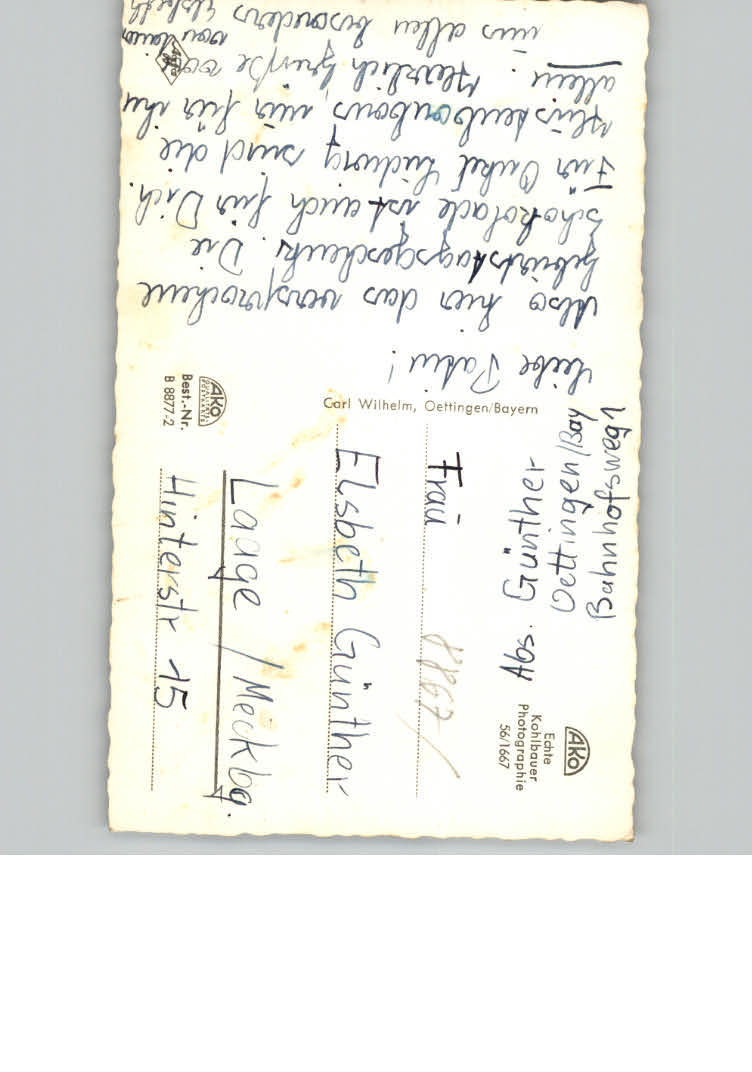 Abs. Günther
Oettingen/Bay
Bahnhofsweg
Frau
Elsbeth Günther
Laage / Meckbg.
Hinterstr 15
AKO
Echte
Kohlbauer
Photographie
56/1667
Carl Wilhelm, Oettingen/Bayern
AKO
Best.-Nr.
B 8877-2
Liebe Patin!
Also hier das versprochene
Geburtstagsgeschenk. Die
Schokolade ist auch für Dich.
Für Onkel Ludwig sind die
Hustenbonbons, nur für ihn
allein. Herzlich Grüße von
uns allen besonders
Elsbeth